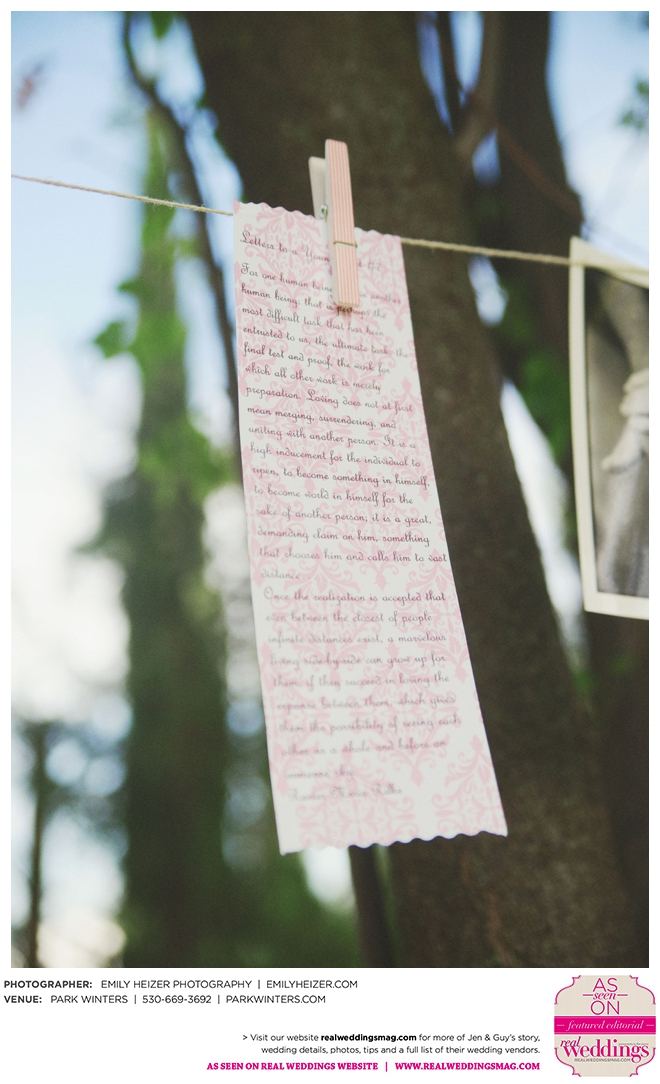 Letters to a
For one human being another
human being: that is the
most difficult task that has been
entrusted to us, the ultimate task, the
final test and proof, the work for
which all other work is merely
preparation. Loving does not at first
mean merging, surrendering, and
uniting with another person. It is a
high inducement for the individual to
ripen, to become something in himself,
to become world in himself for the
sake of another person; it is a great,
demanding claim on him, something
that chooses him and calls him to vast
distance
Once the realization is accepted that
even between the closest of people
infinite distances exist, a marvelous
living side-by-side can grow up for
them if they succeed in loving the
expanse between them, which gives
them the possibility of seeing each
other as a whole and before an
immense sky.
Rainer Maria Rilke
PHOTOGRAPHER: EMILY HEIZER PHOTOGRAPHY | EMILYHEIZER.COM
VENUE: PARK WINTERS | 530-669-3692 | PARKWINTERS.COM
> Visit our website realweddingsmag.com for more of Jen & Guy's story,
wedding details, photos, tips and a full list of their wedding vendors.
AS SEEN ON REAL WEDDINGS WEBSITE | WWW.REALWEDDINGSMAG.COM
AS
seen
ON
featured editorial
real
weddings
REALWEDDINGSMAG.COM